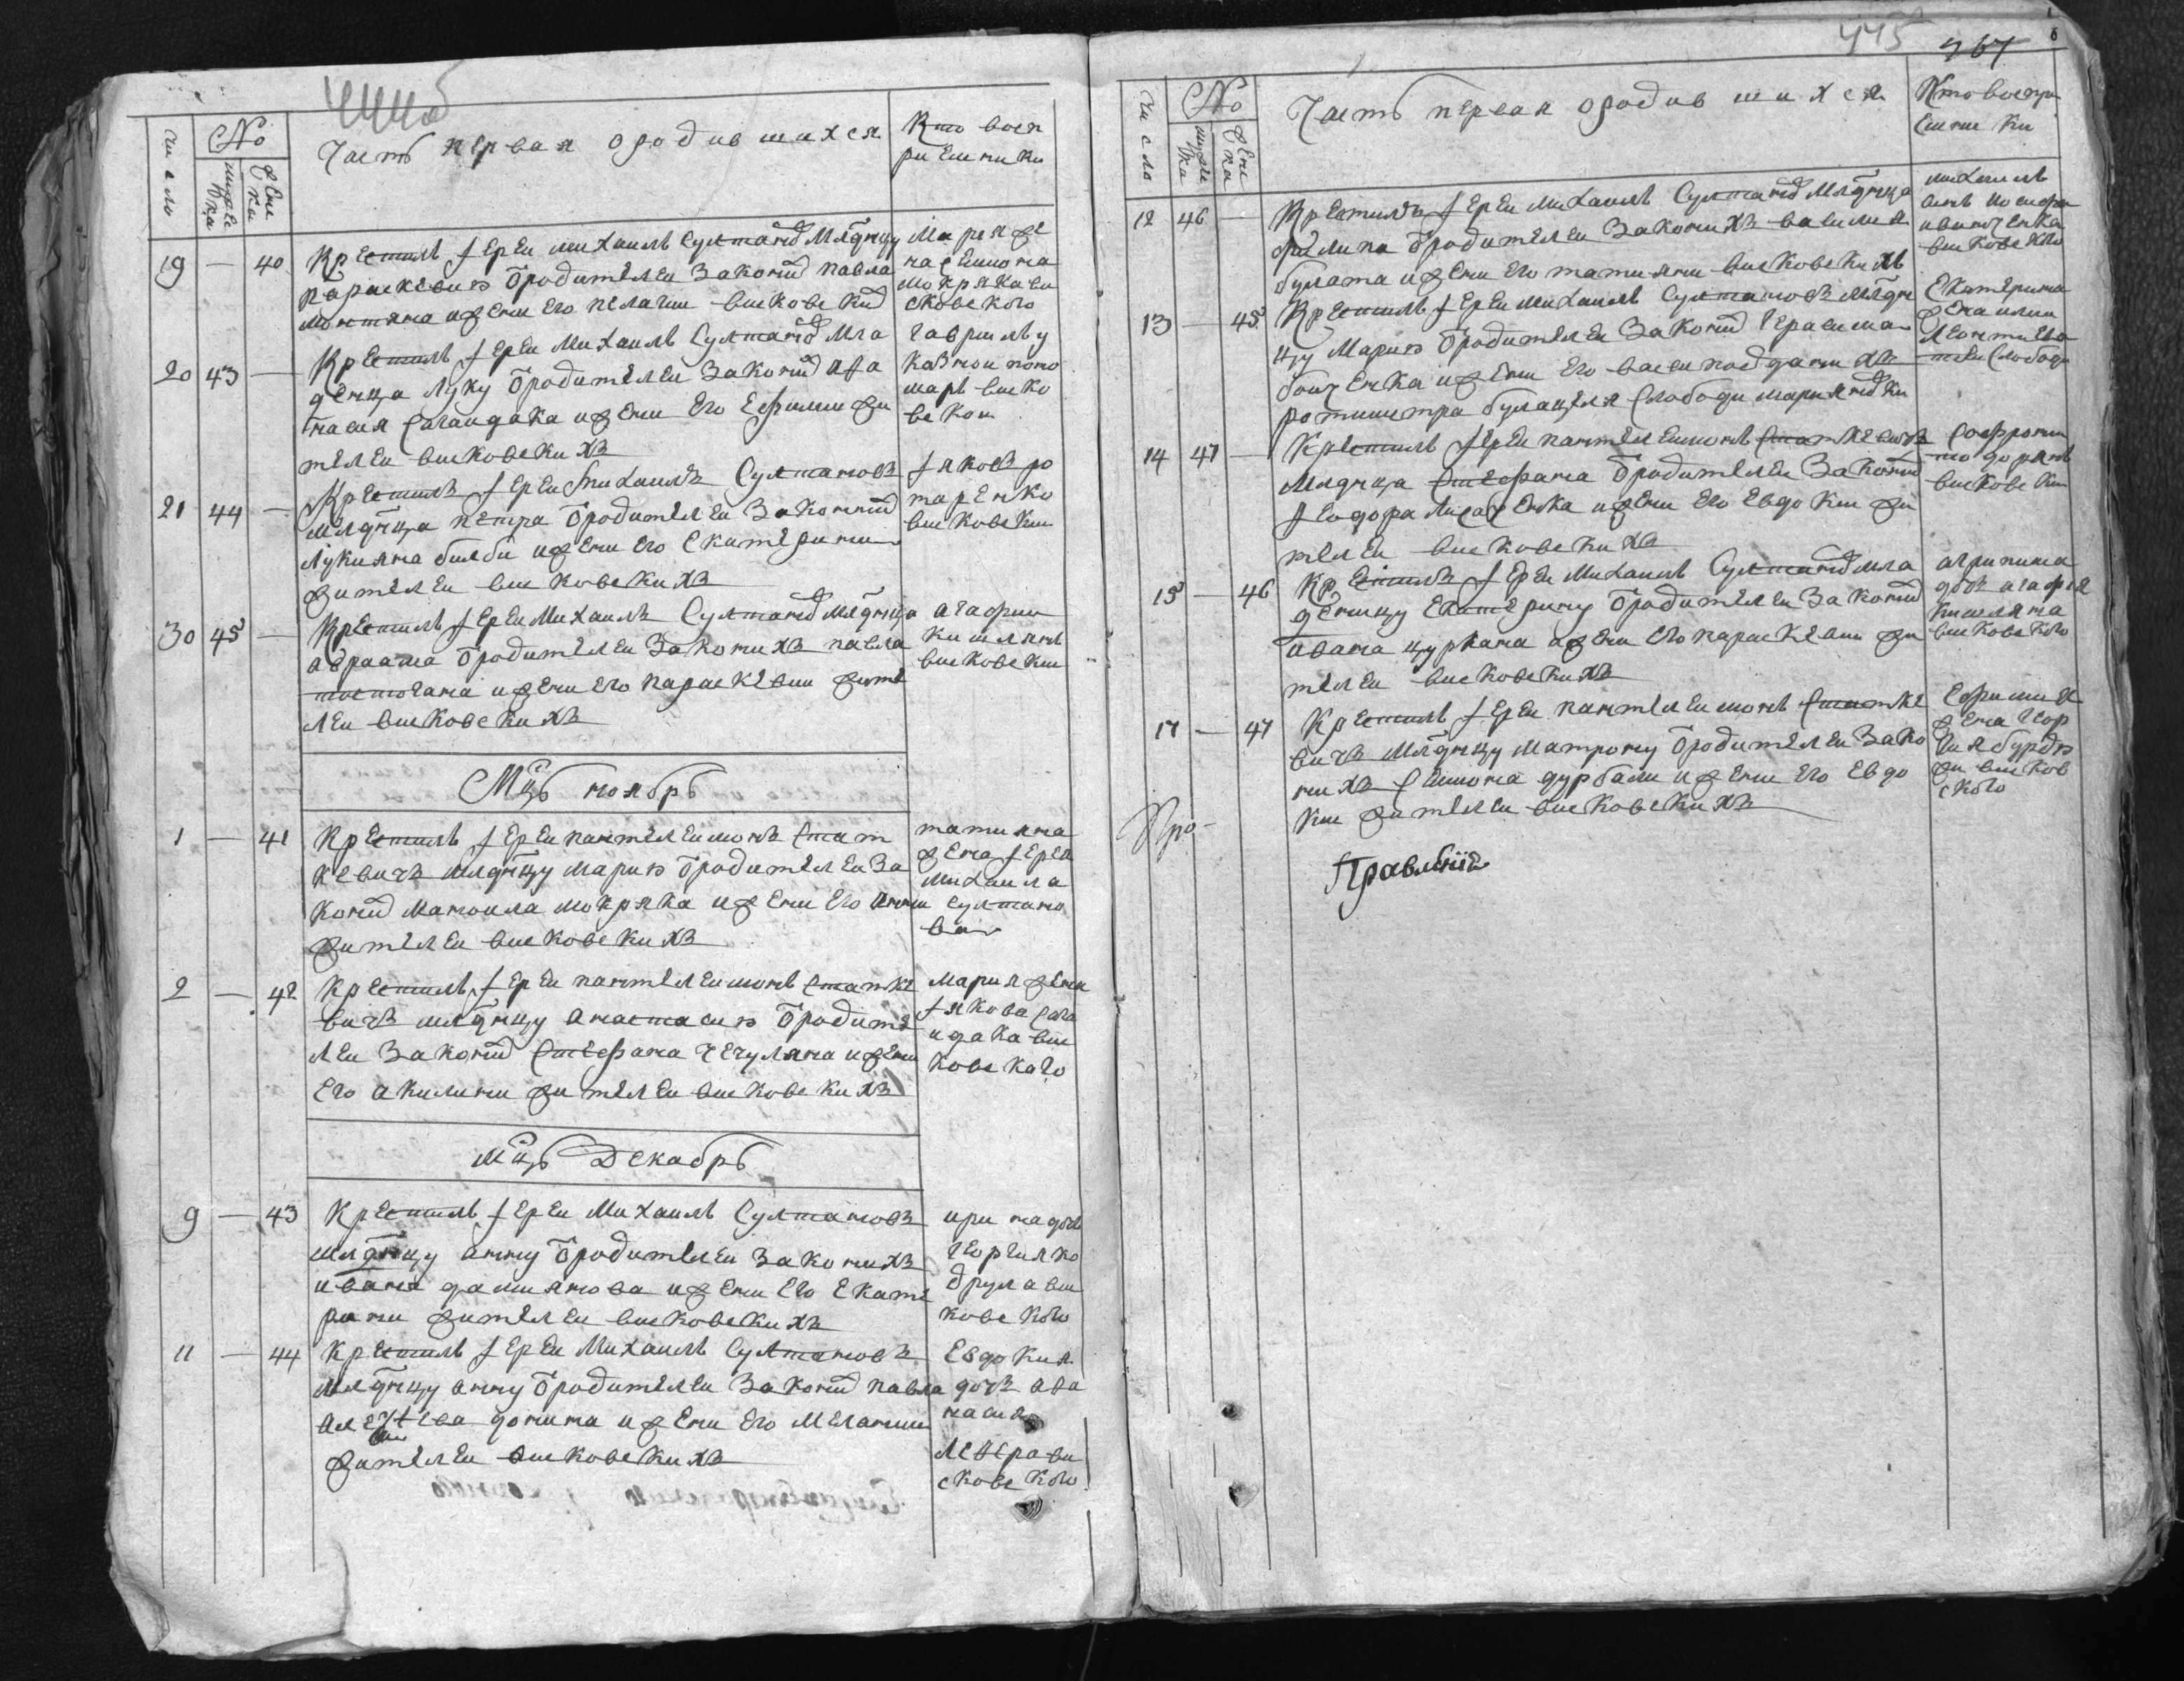 444об
Число
No
мужеска
женска
Часть первая ородившихся
Кто восп
риемники
19 — 40
Крестилъ Іереи михаилъ Султанов младенцу
параскевию ѿродителеи законных павла
монтяна и жени его пелагии висковских
Мария же
на семиона
мокряка ви
сковского
20 43 —
Крестилъ Іереи Михаилъ Султанов мла
денца Луку ѿродителеи законных Афа
насия Сагаидака и жени его Ефимии жи
телеи висковскихъ
гаврилъ у
казнои поно
марь виско
вскои
21 44 —
Крестилъ Іереи михаилъ Султановъ
младенца петра ѿродителеи законних
Лукияна билби и жени его Екатерини
жителеи висковскихъ
Іяковъ ро
таренко
висковски
30 45 —
Крестилъ Іереи Михаилъ Султанов младенца
авраама ѿродителеи законихъ павла
жени его параскевии жите
леи висковскихъ
агафии
кишлянъ
висковски
Мцъ ноябрь
1 — 41
Крестилъ Іереи пантелеимонъ Стат
кевичъ младенцу марию ѿродителеи за
коних Маноила мокряка и жени его Анни
жителеи висковскихъ
татияна
жена Іерея
Михаила
Султано
ва
2 — 42
Крестилъ Іереи пантелеимонъ Статке
вичъ младенцу анастасию ѿродите
леи законих Стефана чегуляна и жени
Его акилини жителеи висковскихъ
Мария жена
Іякова Сага
идака вис
ковскаго
мцъ Декабрь
9 — 43
Крестилъ Іереи Михаилъ Султановъ
младенцу анну ѿродителеи законихъ
ивана дамиянова и жени его Екате
рини жителеи висковскихъ
ирина дочь
георгия ко
друла вис
ковского
11 — 44
Крестилъ Іереи Михаилъ Султановъ
Младенцу анну ѿродителеи законих павла
донина и жени его Мелании
жителеи висковскихъ
Евдокия
дочъ афа
насия
ви
сковского
445
767
Число
No
мужеска
женска
Часть первая ородившихся
Кто воспри
емники
12 46 —
Крестилъ Іереи Михаилъ Султанов Младенца
ѿродителеи законихъ василия
булата и жени его татияни висковскихъ
михаилъ
висковского
13 — 45
Крестилъ Іереи Михаилъ Султановъ младен
цу Марию ѿродителеи законих герасима
боиченка и жени его васси подданихъ
ротмистра булацеля Слободи марияновки
Екатерина
жена илии
Слободи
14 47 —
Крестилъ Іереи пантелеимонъ Статкевичъ
Младенца Стефана ѿродителеи законих
Ѳеодора Лисаченка и жени его Евдокии жи
телеи висковскихъ
Софрони
висковски
15 — 46
Крестилъ Іереи Михаилъ Султанов мла
денцу Екатерину ѿродителеи законих
ивана цуркана и жени его параскевии жи
телеи висковскихъ
агрипина
дочъ агафия
кишляна
висковского
17 — 47
Крестилъ Іереи пантелеимонъ Статке
вичъ младенцу матрону ѿродителеи зако
нихъ Симиона дурбали и жени его Евдо
кии жителеи висковскихъ
Ефимия
жена геор
гия бурдю
жи висков
ского
Про-
Правлѣнія